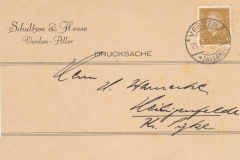 Schultzen & Hesse
Verden-Aller
DRUCKSACHE
VERDEN
(ALLER)
Herrn H. Warnecke,
Heiligenfelde
Kr. Syke